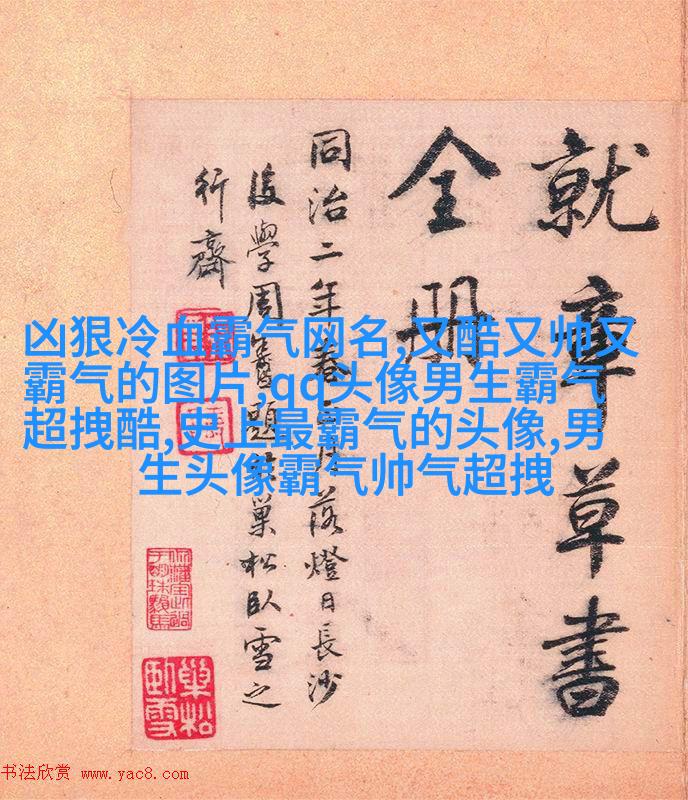 就章草書
全册
同治二年 月落燈日長沙
後學周 題 巢松臥雪之
行齋
凶狠冷血霸气网名,又酷又帅又
霸气的图片,qq头像男生霸气
超拽酷,史上最霸气的头像,男
生头像霸气帅气超拽
巢松
臥雪
书法欣赏 www.yac8.com